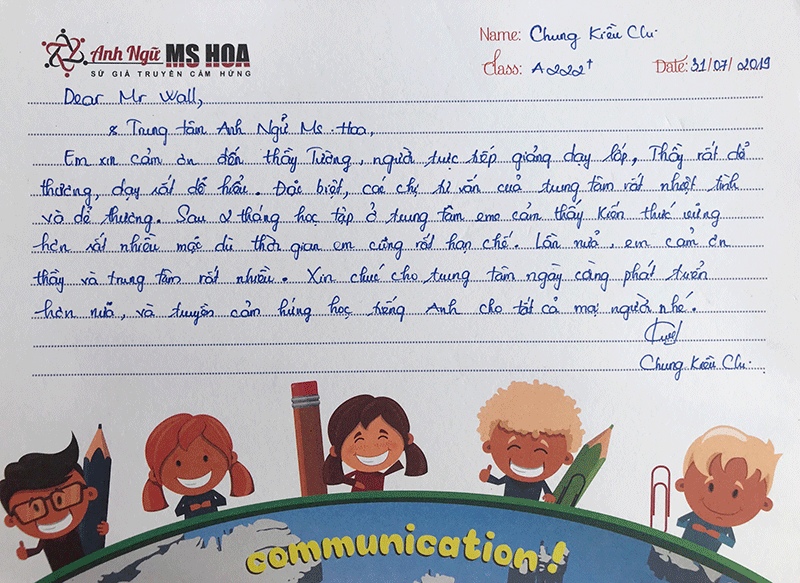 Anh Ngữ MS HOA
SỨ GIẢ TRUYỀN CẢM HỨNG
Name: Chung Kiều Chi
Class: A222+ Date: 31/07/2019
Dear Mr Wall,
& Trung tâm Anh Ngữ Ms. Hoa,
Em xin cảm ơn đến thầy Tường, người trực tiếp giảng dạy lớp, Thầy rất dễ
thương, dạy rất dễ hiểu. Đặc biệt, các chị tư vấn của trung tâm rất nhiệt tình
và dễ thương. Sau 2 tháng học tập ở trung tâm em cảm thấy kiến thức vững
hơn rất nhiều mặc dù thời gian em cũng rất hạn chế. Lần nữa, em cảm ơn
thầy và trung tâm rất nhiều. Xin chúc cho trung tâm ngày càng phát triển
hơn nữa, và truyền cảm hứng học tiếng Anh cho tất cả mọi người nhé.
Chung Kiều Chi
communication!